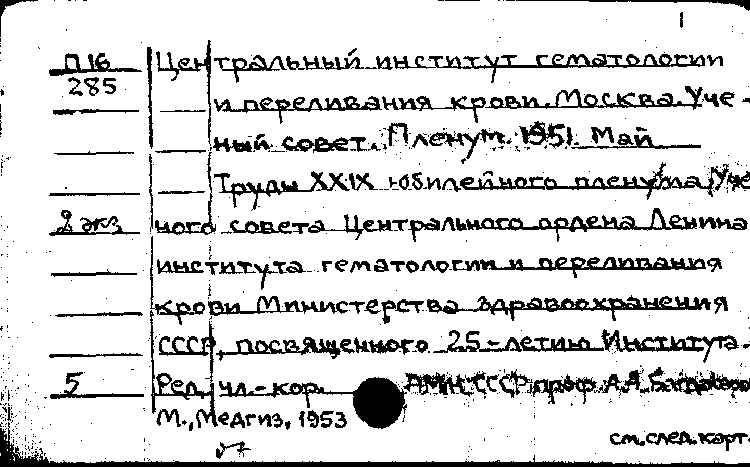 1
П16 Центральный институт гематологии
285 и переливания крови. Москва. Уче-
ный совет. Пленум. 1951. Май
Труды XXIX юбилейного пленума Уче
2 экз ного совета Центрального ордена Ленина
института гематологии и переливания
крови Министерства здравоохранения
СССР, посвященного 25-летию Института.
5 Ред. чл.-кор. АМН СССР проф. А.А. Багдасаров
М., Медгиз, 1953
см.след.карт.